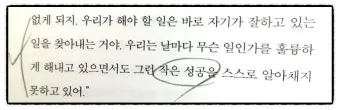 없게 되지. 우리가 해야 할 일은 바로 자기가 잘하고 있는
일을 찾아내는 거야. 우리는 날마다 무슨 일인가를 훌륭하
게 해내고 있으면서도 그런 작은 성공을 스스로 알아채지
못하고 있어.”